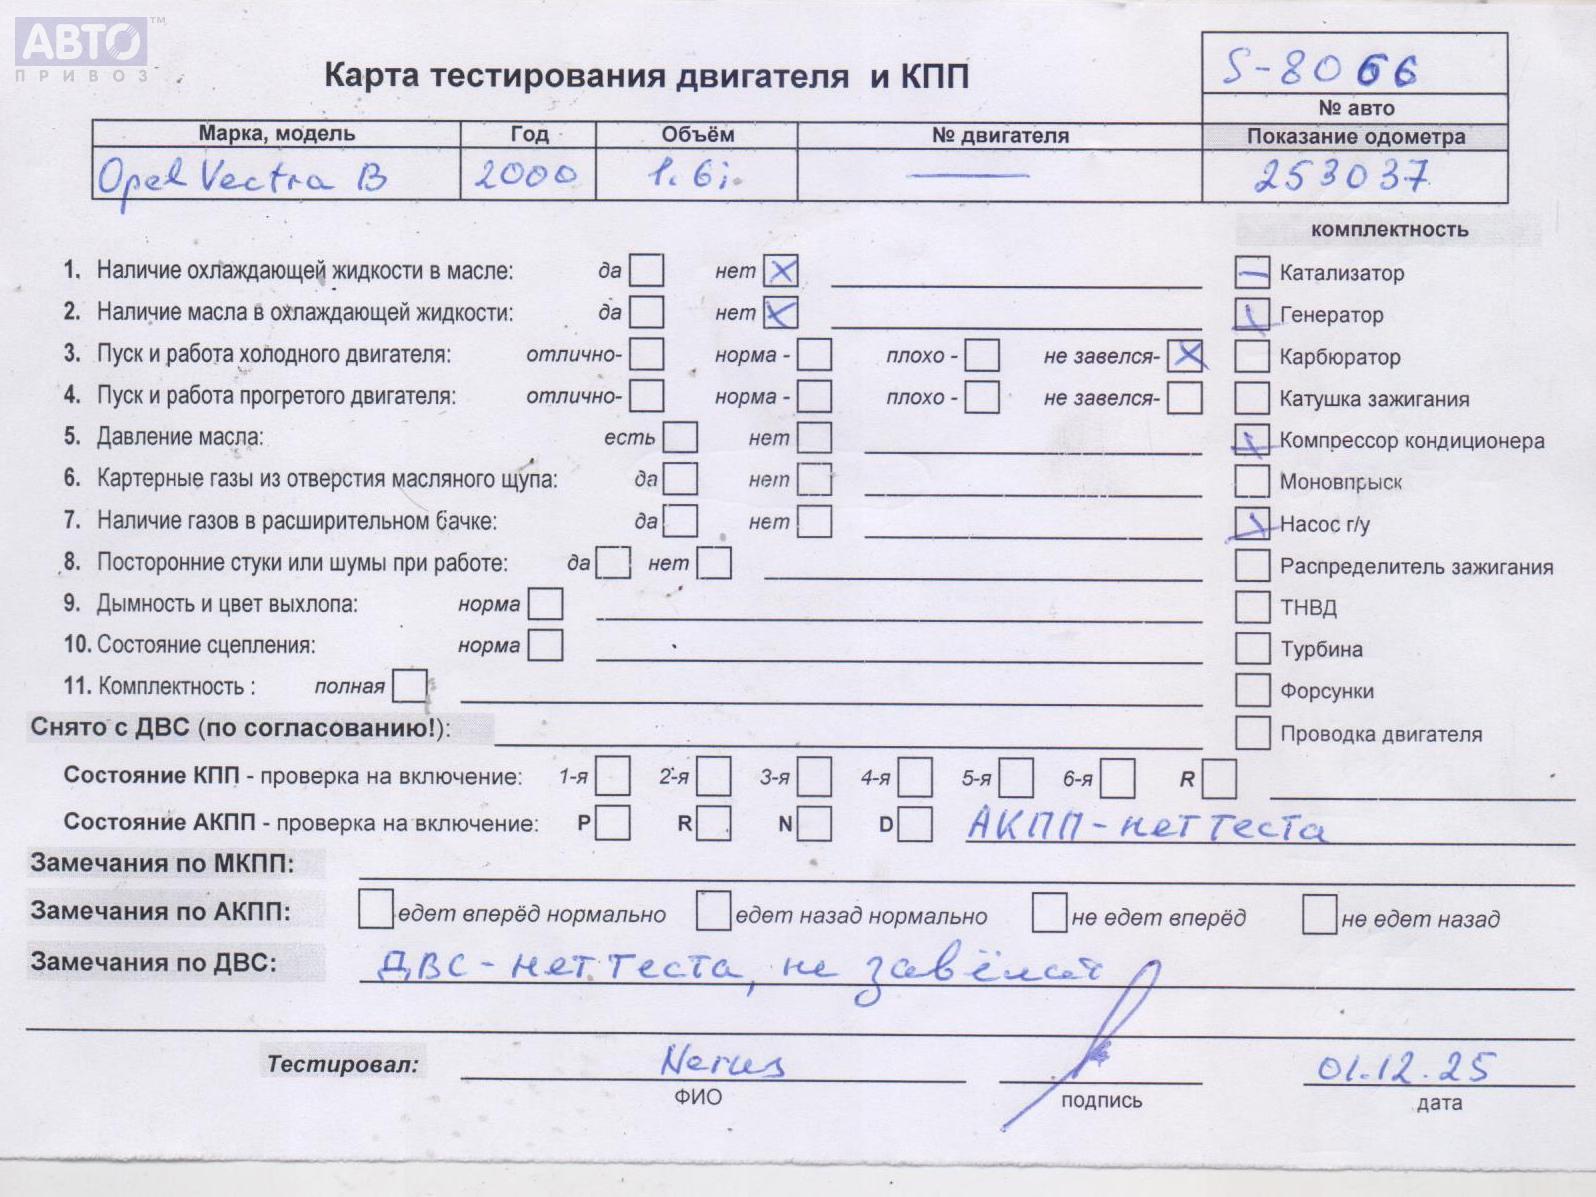 АВТО™
ПРИВОЗ
Карта тестирования двигателя и КПП
S-8066
№ авто
Марка, модель Год Объём № двигателя Показание одометра
Opel Vectra B 2000 1.6i — 253037
комплектность
1. Наличие охлаждающей жидкости в масле: да нет X
— Катализатор
2. Наличие масла в охлаждающей жидкости: да нет X
X Генератор
3. Пуск и работа холодного двигателя: отлично- норма - плохо - не завелся- X
Карбюратор
4. Пуск и работа прогретого двигателя: отлично- норма - плохо - не завелся-
Катушка зажигания
5. Давление масла: есть нет
X Компрессор кондиционера
6. Картерные газы из отверстия масляного щупа: да нет
Моновпрыск
7. Наличие газов в расширительном бачке: да нет
X Насос г/у
8. Посторонние стуки или шумы при работе: да нет
Распределитель зажигания
9. Дымность и цвет выхлопа: норма
ТНВД
10. Состояние сцепления: норма
Турбина
11. Комплектность : полная
Форсунки
Снято с ДВС (по согласованию!):
Проводка двигателя
Состояние КПП - проверка на включение: 1-я 2-я 3-я 4-я 5-я 6-я R
Состояние АКПП - проверка на включение: P R N D АКПП - нет теста
Замечания по МКПП:
Замечания по АКПП: едет вперёд нормально едет назад нормально не едет вперёд не едет назад
Замечания по ДВС: ДВС - нет теста, не завёлся
Тестировал: 01.12.25
ФИО подпись дата